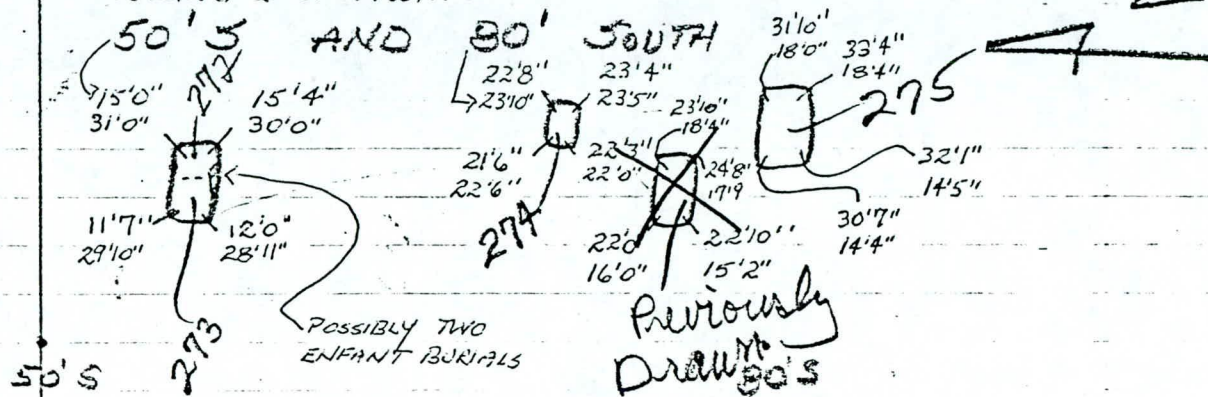 50' S AND 80' SOUTH
272
15'0"
31'0"
15'4"
30'0"
11'7"
29'10"
12'0"
28'11"
273
POSSIBLY TWO
ENFANT BURIALS
22'8"
23'10"
23'4"
23'5"
21'6"
22'6"
274
23'10"
18'4"
22'3"
22'0"
24'8"
17'9
22'0
16'0"
22'10"
15'2"
Previously
Drawn
80'S
31'10"
18'0"
33'4"
18'4"
275
32'1"
14'5"
30'7"
14'4"
50'S